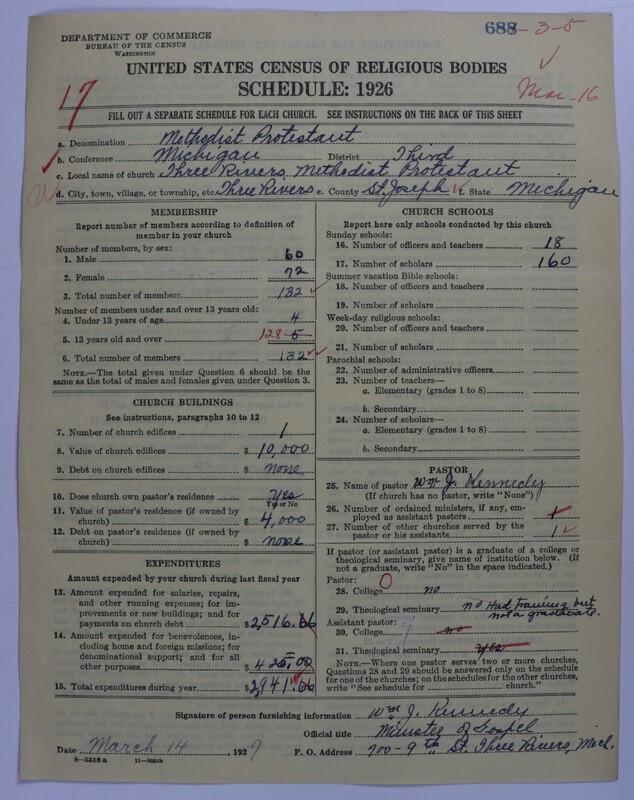 DEPARTMENT OF COMMERCE
BUREAU OF THE CENSUS
WASHINGTON
688-3-5
UNITED STATES CENSUS OF RELIGIOUS BODIES
SCHEDULE: 1926
17
Mar-16
FILL OUT A SEPARATE SCHEDULE FOR EACH CHURCH. SEE INSTRUCTIONS ON THE BACK OF THIS SHEET
a. Denomination Methodist Protestant
b. Conference Michigan District Third
c. Local name of church Three Rivers Methodist Protestant
d. City, town, village, or township, etc. Three Rivers e. County St. Joseph f. State Michigan
MEMBERSHIP
Report number of members according to definition of member in your church
Number of members, by sex:
1. Male 60
2. Female 72
3. Total number of members 132
Number of members under and over 13 years old:
4. Under 13 years of age 4
5. 13 years old and over 128 5
6. Total number of members 132
NOTE.—The total given under Question 6 should be the
same as the total of males and females given under Question 3.
CHURCH BUILDINGS
See instructions, paragraphs 10 to 12
7. Number of church edifices 1
8. Value of church edifices $ 10,000
9. Debt on church edifices $ none
10. Does church own pastor's residence Yes
Yes or No
11. Value of pastor's residence (if owned by
church) $ 4,000
12. Debt on pastor's residence (if owned by
church) $ none
EXPENDITURES
Amount expended by your church during last fiscal year
13. Amount expended for salaries, repairs,
and other running expenses; for im-
provements or new buildings; and for
payments on church debt $ 2516.66
14. Amount expended for benevolences,
including home and foreign missions; for
denominational support; and for all
other purposes $ 425.00
15. Total expenditures during year $ 2,941.66
CHURCH SCHOOLS
Report here only schools conducted by this church
Sunday schools:
16. Number of officers and teachers 18
17. Number of scholars 160
Summer vacation Bible schools:
18. Number of officers and teachers
19. Number of scholars
Week-day religious schools:
20. Number of officers and teachers
21. Number of scholars
Parochial schools:
22. Number of administrative officers
23. Number of teachers—
a. Elementary (grades 1 to 8)
b. Secondary
24. Number of scholars—
a. Elementary (grades 1 to 8)
b. Secondary
PASTOR
25. Name of pastor Wm J. Kennedy
(If church has no pastor, write "None")
26. Number of ordained ministers, if any, em-
ployed as assistant pastors 1
27. Number of other churches served by the
pastor or his assistants 1
If pastor (or assistant pastor) is a graduate of a college or
theological seminary, give name of institution below. (If
not a graduate, write "No" in the space indicated.)
Pastor:
28. College no
29. Theological seminary no Had training but
not a graduate.
Assistant pastor:
30. College no
31. Theological seminary Yes
NOTE.—Where one pastor serves two or more churches,
Questions 28 and 29 should be answered only on the schedule
for one of the churches; on the schedules for the other churches,
write "See schedule for church."
Signature of person furnishing information Wm J. Kennedy
Official title Minister of Gospel
Date March 14, 1927 P. O. Address 700-9th St. Three Rivers, Mich.
8-5518a 11-9664b